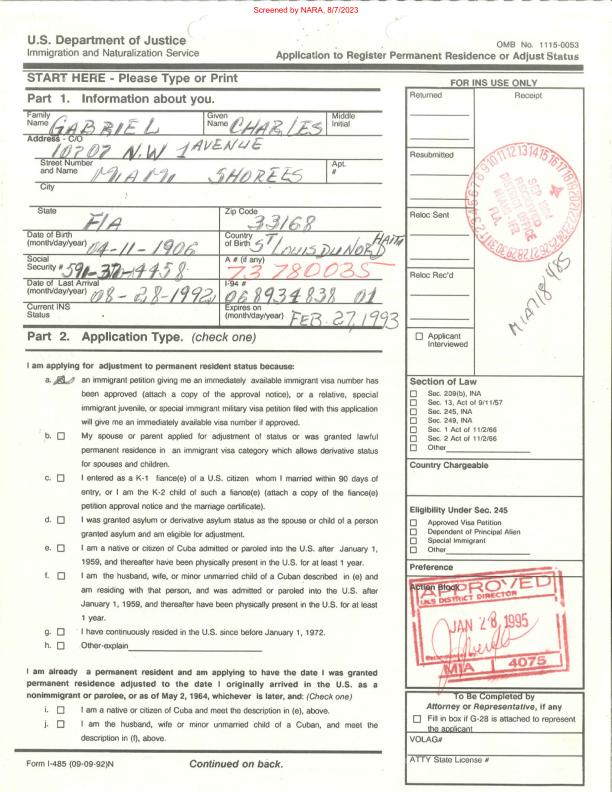 Screened by NARA, 8/7/2023
U.S. Department of Justice
Immigration and Naturalization Service
OMB No. 1115-0053
Application to Register Permanent Residence or Adjust Status
START HERE - Please Type or Print
Part 1. Information about you.
Family Name GABRIEL Given Name CHARLES Middle Initial
Address - C/O 10707 N.W 1 AVENUE
Street Number and Name MIAMI SHORES Apt. #
City
State FlA Zip Code 33168
Date of Birth (month/day/year) 04-11-1906 Country of Birth ST LOUIS DU NORD HAITI
Social Security # 591-37-4458 A # (if any) 73 780035
Date of Last Arrival (month/day/year) 08-28-1992 I-94 # 068934838 01
Current INS Status Expires on (month/day/year) FEB. 27, 1993
Part 2. Application Type. (check one)
I am applying for adjustment to permanent resident status because:
a. an immigrant petition giving me an immediately available immigrant visa number has
been approved (attach a copy of the approval notice), or a relative, special
immigrant juvenile, or special immigrant military visa petition filed with this application
will give me an immediately available visa number if approved.
b. My spouse or parent applied for adjustment of status or was granted lawful
permanent residence in an immigrant visa category which allows derivative status
for spouses and children.
c. I entered as a K-1 fiance(e) of a U.S. citizen whom I married within 90 days of
entry, or I am the K-2 child of such a fiance(e) (attach a copy of the fiance(e)
petition approval notice and the marriage certificate).
d. I was granted asylum or derivative asylum status as the spouse or child of a person
granted asylum and am eligible for adjustment.
e. I am a native or citizen of Cuba admitted or paroled into the U.S. after January 1,
1959, and thereafter have been physically present in the U.S. for at least 1 year.
f. I am the husband, wife, or minor unmarried child of a Cuban described in (e) and
am residing with that person, and was admitted or paroled into the U.S. after
January 1, 1959, and thereafter have been physically present in the U.S. for at least
1 year.
g. I have continuously resided in the U.S. since before January 1, 1972.
h. Other-explain
I am already a permanent resident and am applying to have the date I was granted
permanent residence adjusted to the date I originally arrived in the U.S. as a
nonimmigrant or parolee, or as of May 2, 1964, whichever is later, and: (Check one)
i. I am a native or citizen of Cuba and meet the description in (e), above.
j. I am the husband, wife or minor unmarried child of a Cuban, and meet the
description in (f), above.
Form I-485 (09-09-92)N Continued on back.
FOR INS USE ONLY
Returned Receipt
Resubmitted
Reloc Sent
Reloc Rec'd
MIA718485
Applicant Interviewed
Section of Law
Sec. 209(b), INA
Sec. 13, Act of 9/11/57
Sec. 245, INA
Sec. 249, INA
Sec. 1 Act of 11/2/66
Sec. 2 Act of 11/2/66
Other
Country Chargeable
Eligibility Under Sec. 245
Approved Visa Petition
Dependent of Principal Alien
Special Immigrant
Other
Preference
Action Block
APPROVED
U.S DISTRICT DIRECTOR
JAN 28, 1995
MIA 4075
To Be Completed by
Attorney or Representative, if any
Fill in box if G-28 is attached to represent
the applicant
VOLAG#
ATTY State License #